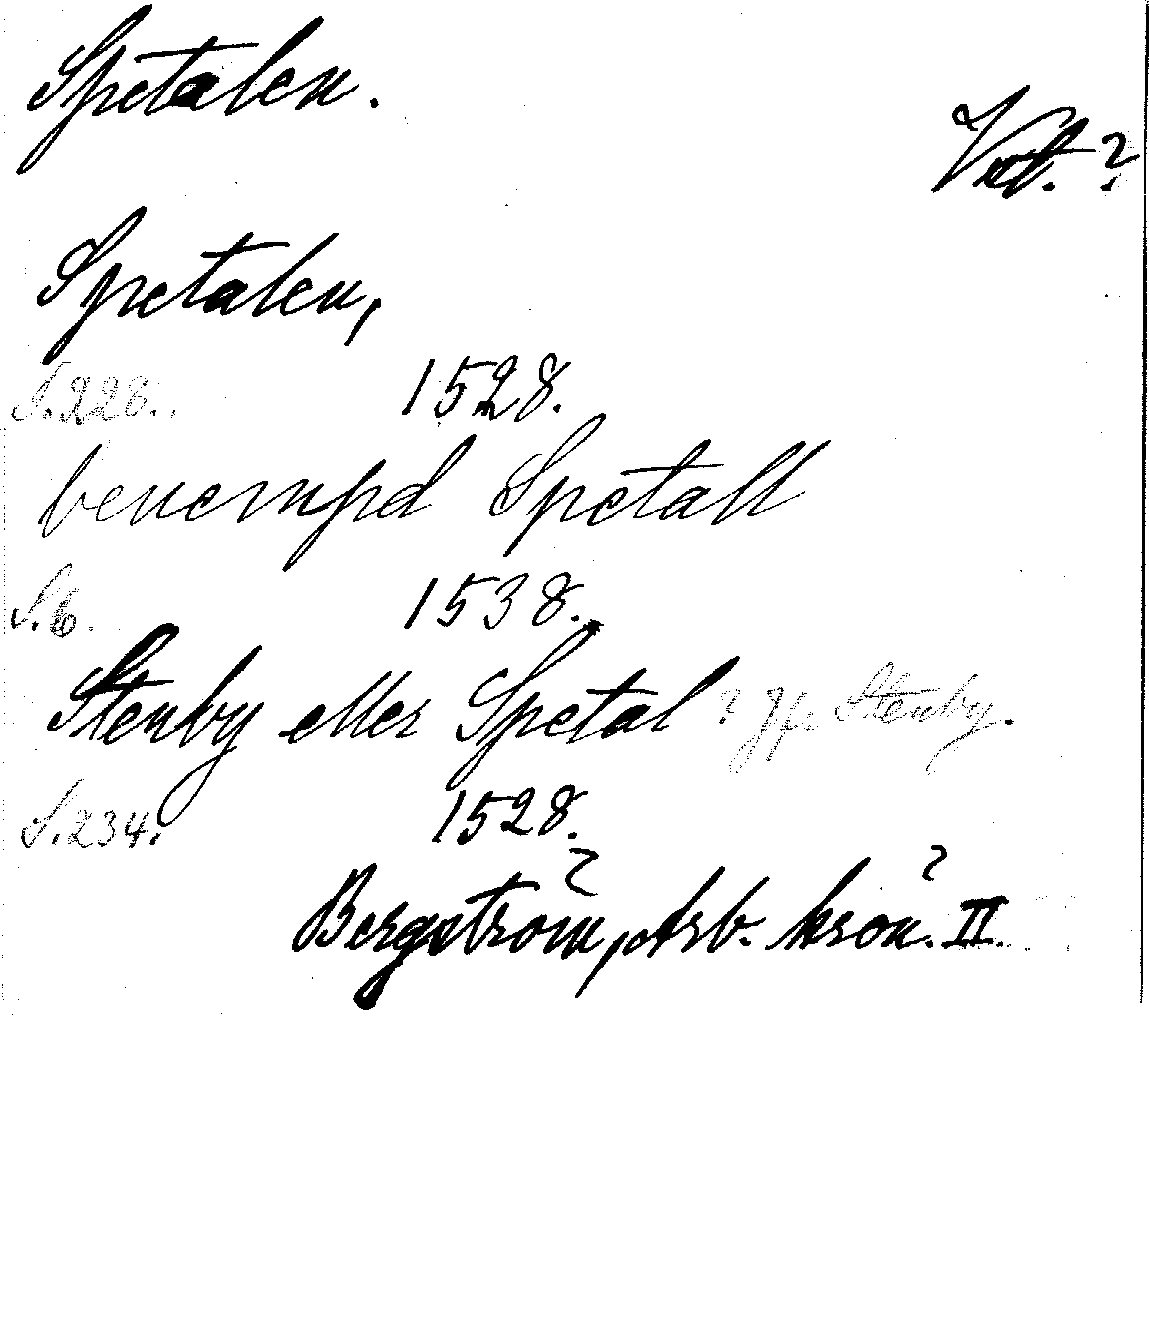 Spetalen.
Vst. ?
Spetalen,
S. 228. 1528.
benempd Spetall
S. 6. 1538.
Stenby eller Spetal ? Jfr Stenby.
S. 234. 1528.
Bergström, Arb. krön. II.